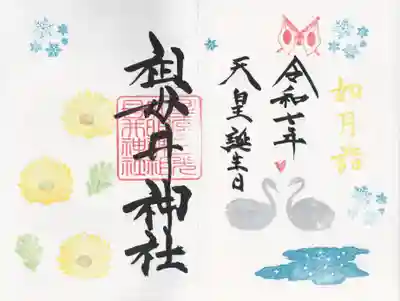 如月詣
令和七年
天皇誕生日
祖母井神社